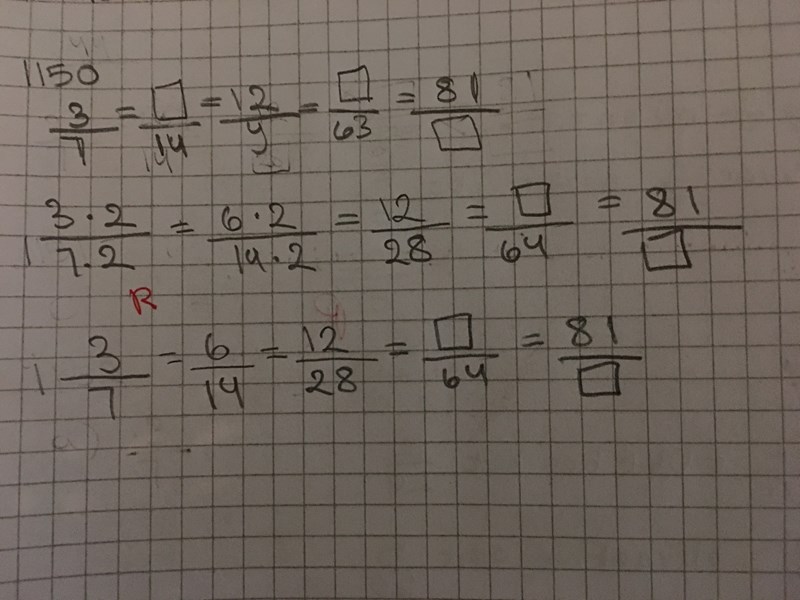 1150
3/7 = □/14 = 12/y = □/63 = 81/□
1 3·2/7·2 = 6·2/14·2 = 12/28 = □/64 = 81/□
R
1 3/7 = 6/14 = 12/28 = □/64 = 81/□